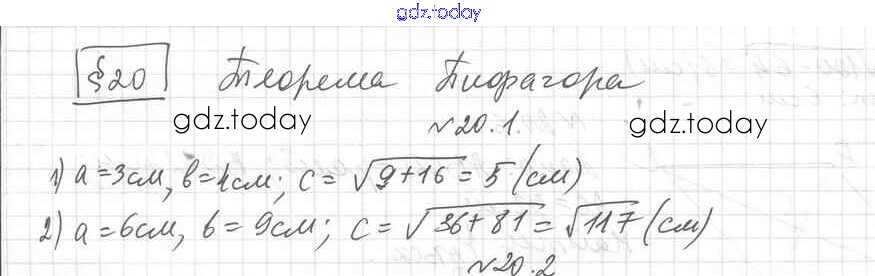 gdz.today
§20 Теорема Пифагора
gdz.today gdz.today
№20.1.
1) a=3см, b=4см; c=√9+16=5(см)
2) a=6см, b=9см; c=√36+81=√117(см)
№20.2